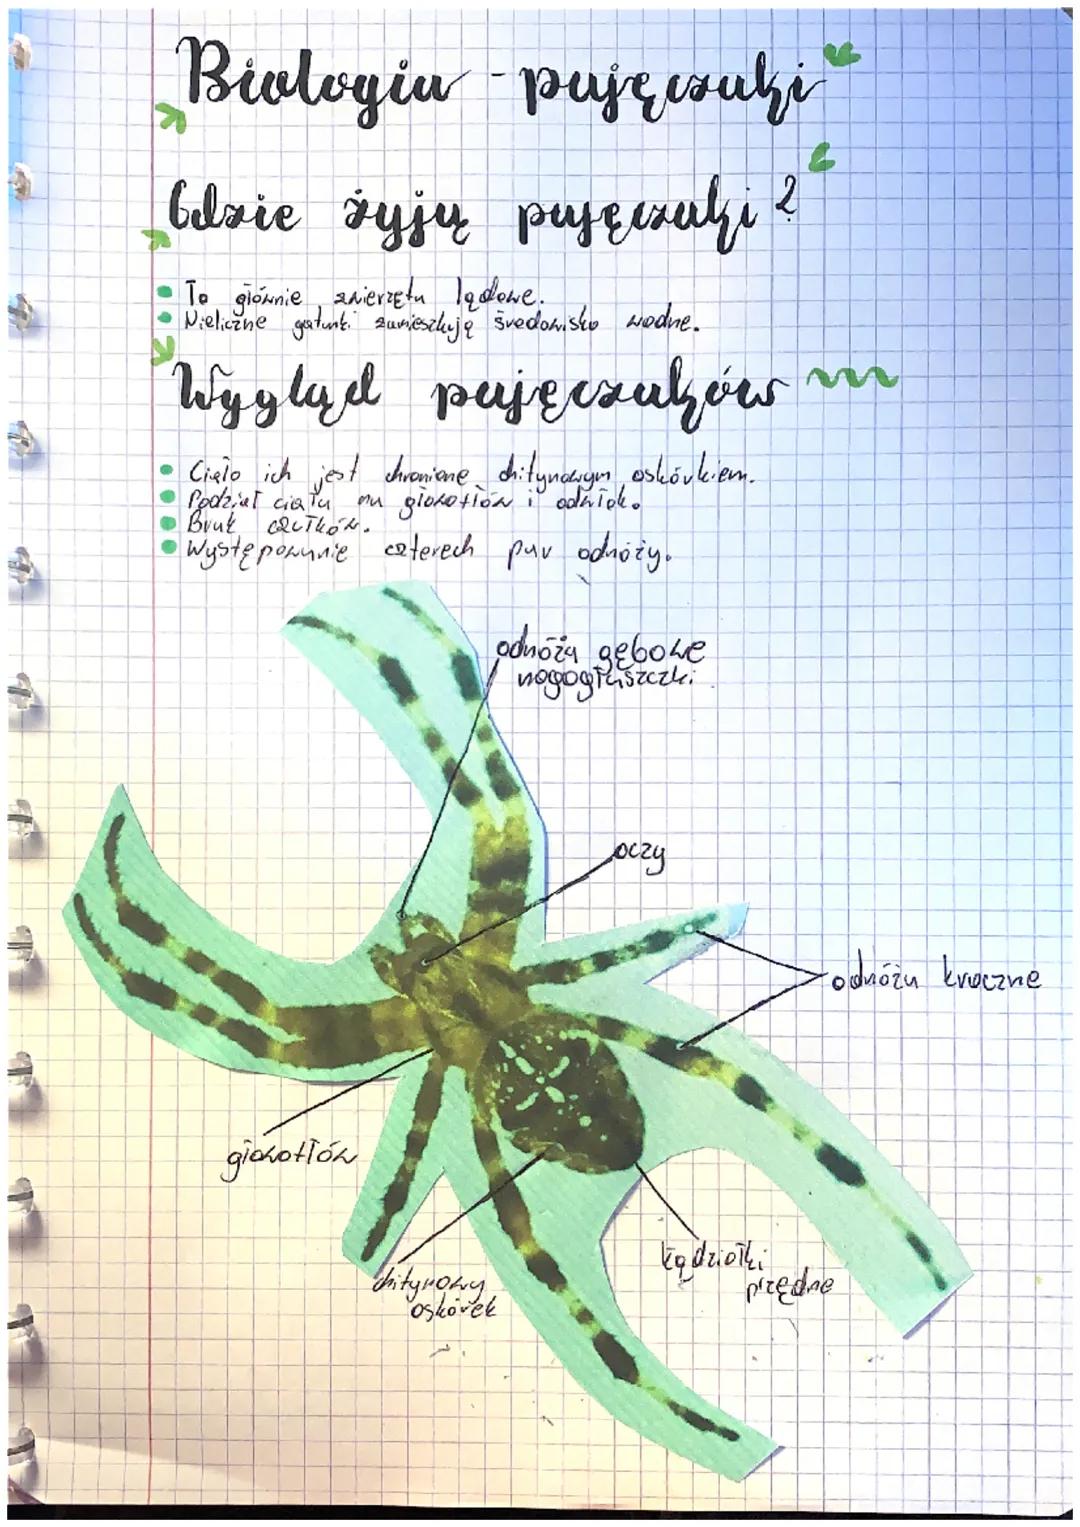 Biologia - pajęczaki
Gdzie żyją pajęczaki?
To głównie zwierzęta lądowe.
Nieliczne gatunki zamieszkują środowisko wodne.
Wygląd pajęczaków
Ciało ich jest chronione chitynowym oskórkiem.
Podział ciała na głowotłów i odwłok.
Brak czułków.
Występowanie czterech par odnóży.
odnóża gębowe
nogogłaszczki
oczy
odnóża kroczne
głowotłów
chitynowy
oskórek
kądziołki
przędne